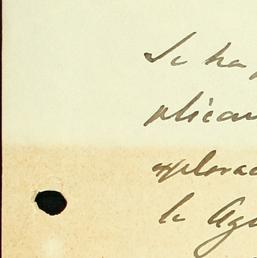 Se ha
plican
explorac
la Agr